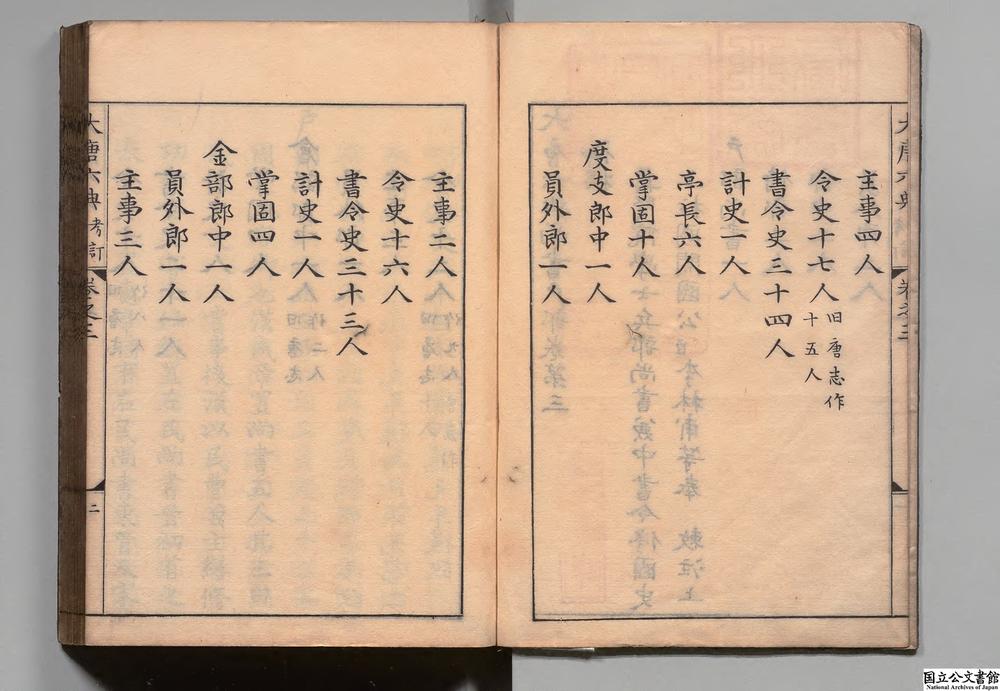 主事四人
令史十七人 旧唐志作十五人
書令史三十四人
計史一人
亭長六人
掌固十人
度支郎中一人
員外郎一人
主事二人
令史十六人
書令史三十三人
計史一人
掌固四人
金部郎中一人
員外郎一人
主事三人
大唐六典考訂 卷之三 二
国立公文書館
National Archives of Japan